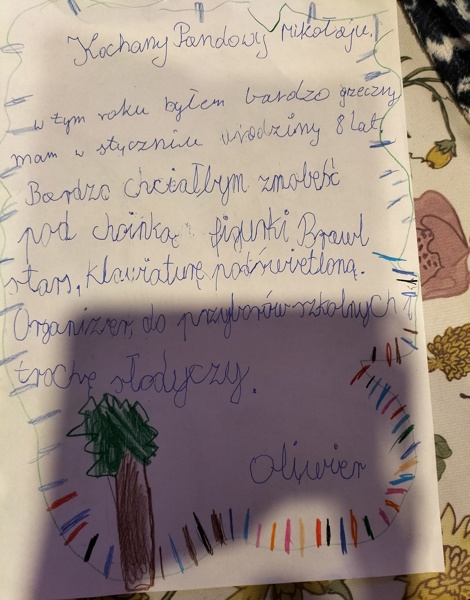 Kochany Pandowy Mikołaju.
w tym roku byłem bardzo grzeczny
mam w styczniu urodziny 8 lat.
Bardzo chciałbym znaleść
pod choinką figurki Brawl
stars, klawiaturę podświetloną.
Organizer do przyborów szkolnych i
trochę słodyczy.
Oliwier